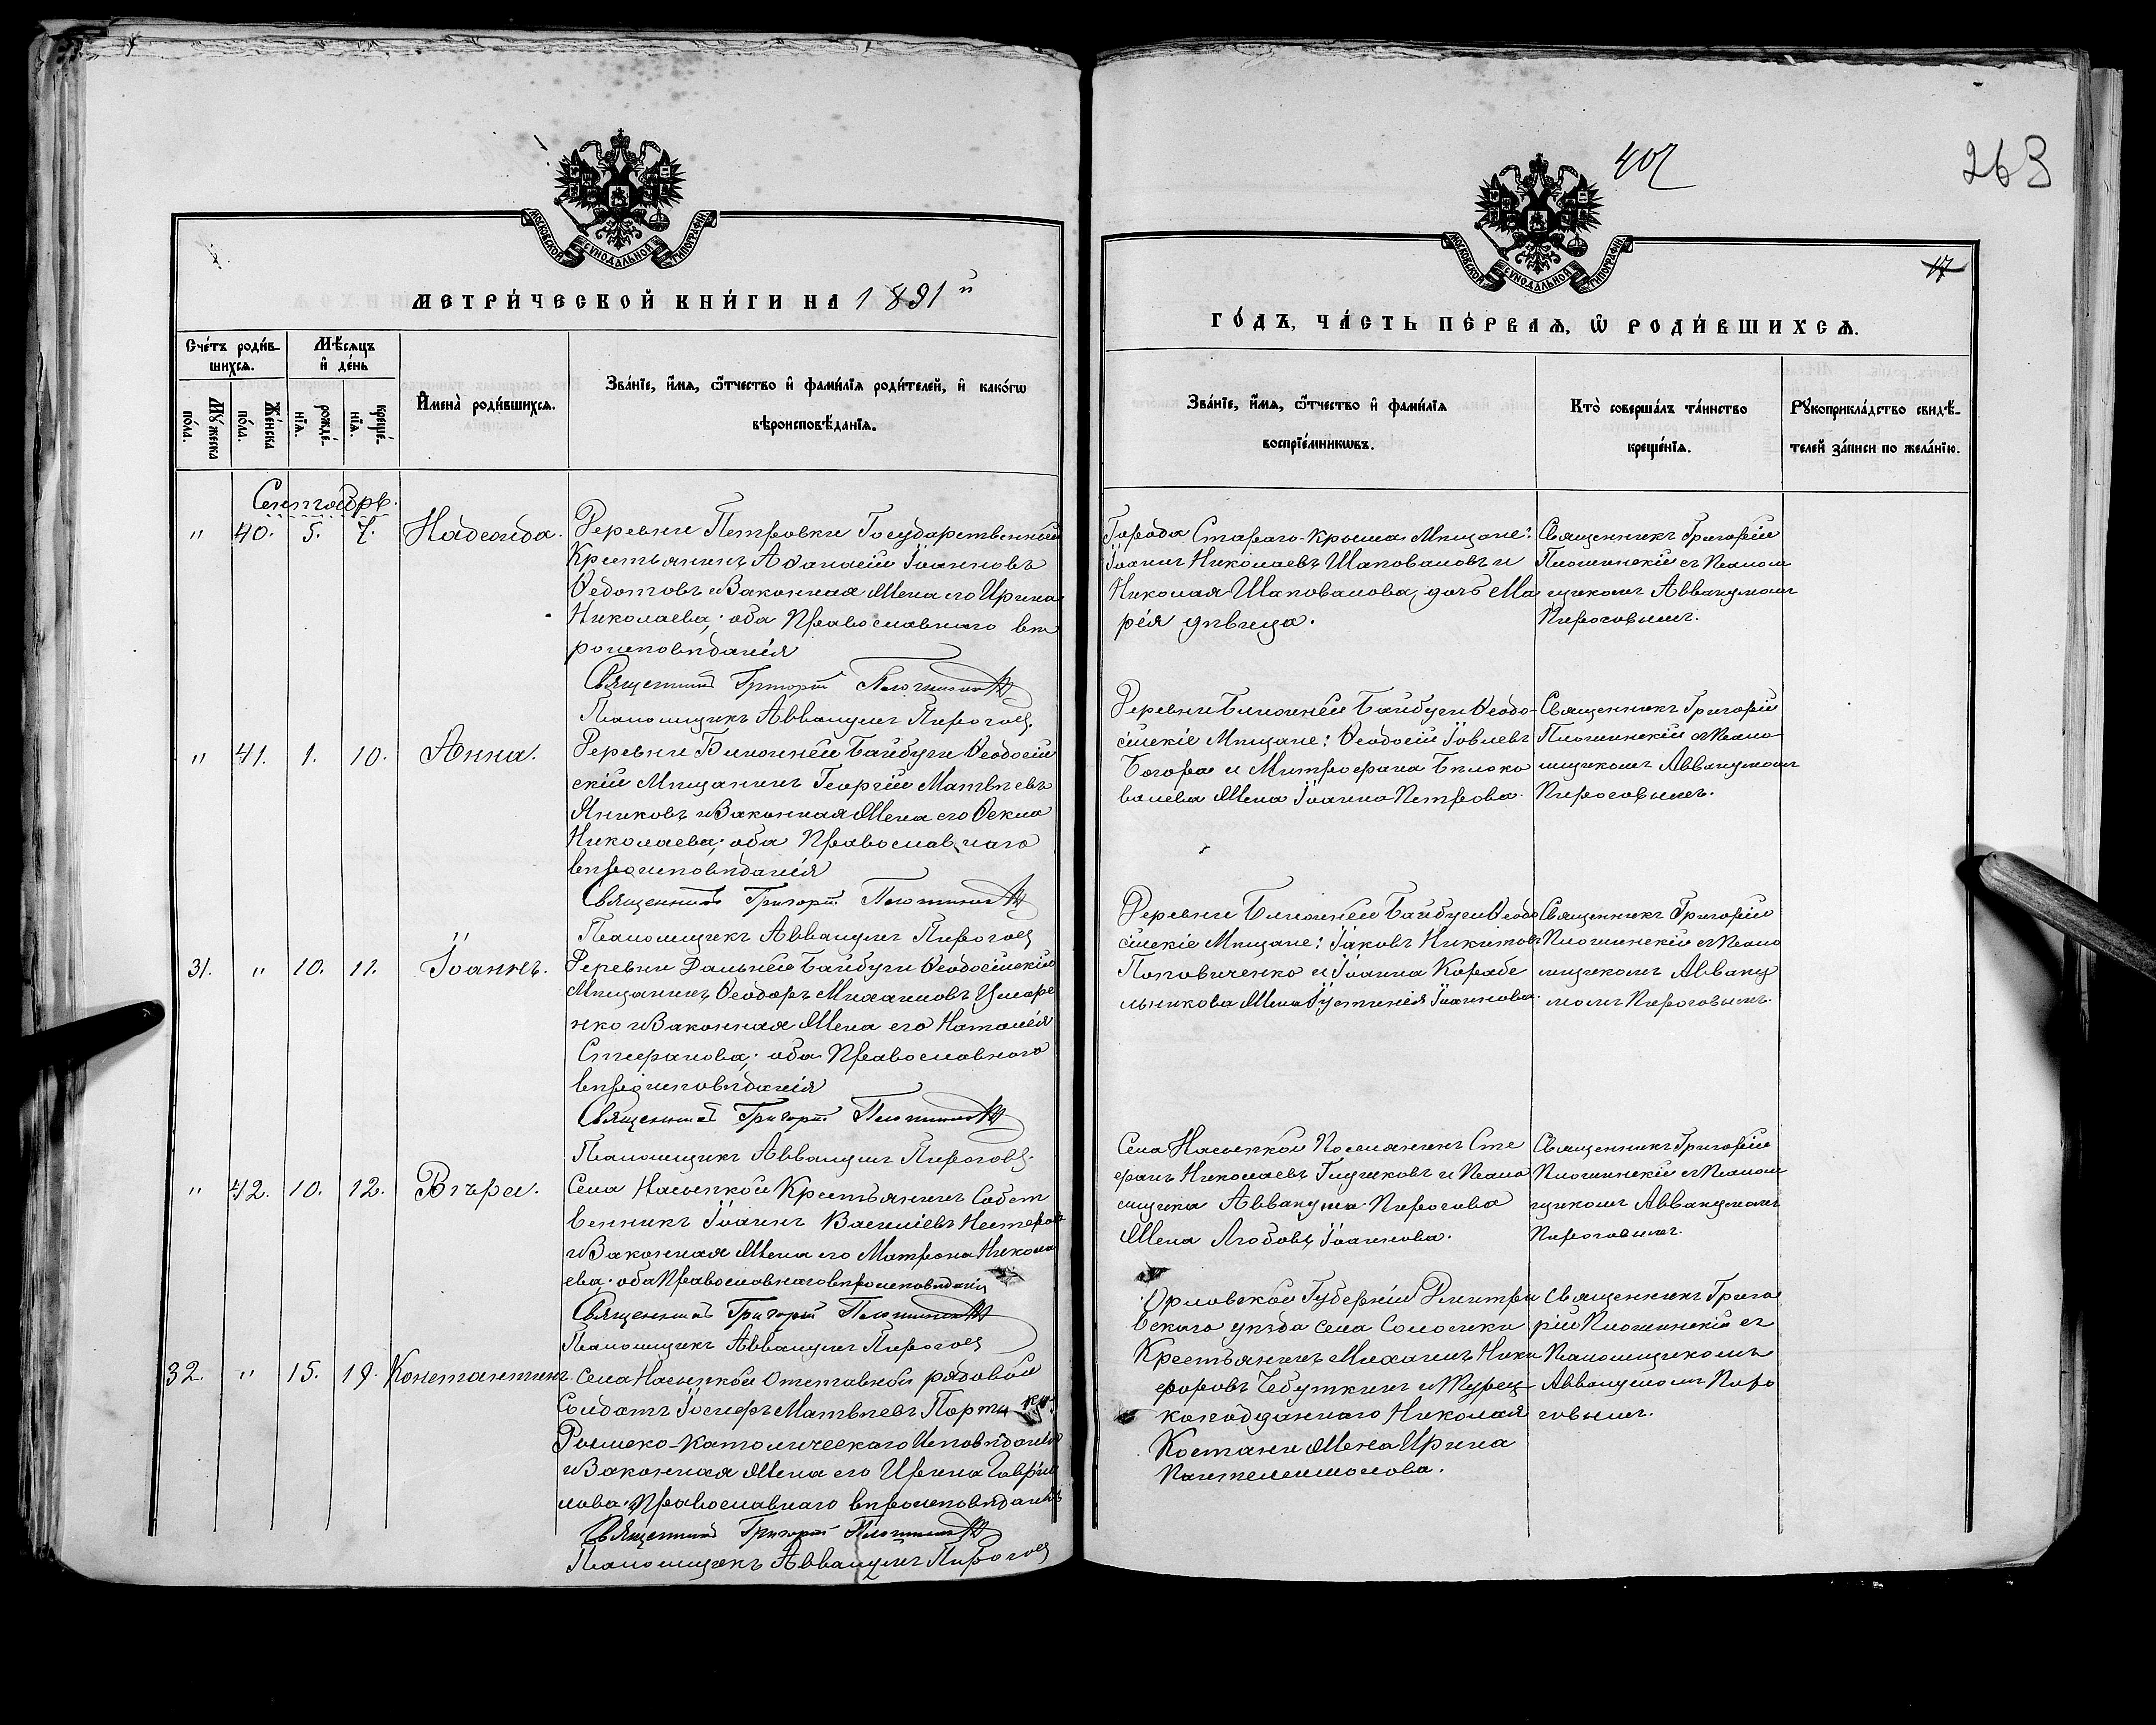 407
263
17
МОСКОВСКОЙ СУНОДАЛЬНОЙ ТИПОГРАФІИ
МОСКОВСКОЙ СУНОДАЛЬНОЙ ТИПОГРАФІИ
МЕТРИ́ЧЕСКОЙ КНИ́ГИ НА 1891й
ГО́ДЪ, ЧА́СТЬ ПЕ́РВАѦ, Ѽ РОДИ́ВШИХСѦ.
Сче́тъ роди́вшихсѧ.
Мꙋ́жеска по́ла.
Же́нска по́ла.
Мѣ́сѧцъ и҆ де́нь
рожде́нїѧ.
креще́нїѧ.
И҆мена̀ роди́вшихсѧ.
Зва́нїе, и҆́мѧ, ѻ҆́тчество и҆ фами́лїѧ роди́телей, и҆ како́гѡ
вѣроисповѣ́данїѧ.
Зва́нїе, и҆́мѧ, ѻ҆́тчество и҆ фами́лїѧ
воспрїе́мникѡвъ.
Кто̀ соверша́лъ та́инство
креще́нїѧ.
Рꙋкоприкла́дство свидѣ́-
телей за́писи по жела́нїю.
Сентябрь.
" 40. 5. 7. Надежда.
Деревни Петровки Государственный
Крестьянинъ Аѳанасій Іоанновъ
Ѳедотовъ и Законная Жена его Ирина
Николаева; оба Православнаго вѣ
роисповѣданія
Священникъ Григорій
Псаломщикъ Аввакумъ Пироговъ.
Города Стараго-Крыма Мѣщане:
Іоаннъ Николаевъ Шаповаловъ и
Николая Шаповалова, дочь Ма
рія дѣвица.
Священникъ Григорій
Плошинскій съ Псалом
щикомъ Аввакумомъ
Пироговымъ.
" 41. 1. 10. Анна.
Деревни Ближней Байбуги Ѳеодосій
скій Мѣщанинъ Георгій Матвѣевъ
Яниковъ и Законная Жена его Ѳекла
Николаева; оба Православнаго
вѣроисповѣданія
Священникъ Григорій
Псаломщикъ Аввакумъ Пироговъ
Деревни Ближней Байбуги Ѳеодо-
сійскіе Мѣщане: Ѳеодосій Іовлевъ
Богора и Митрофана Бѣлоко
валева Жена Іоанна Петрова.
Священникъ Григорій
Плошинскій съ Псало
мщикомъ Аввакумомъ
Пироговымъ.
31. " 10. 11. Іоаннъ.
Деревни Дальней Байбуги Ѳеодосійскій
Мѣщанинъ Ѳеодоръ Михаиловъ
нко и Законная Жена его Наталія
Стефанова; оба Православнаго
вѣроисповѣданія
Священникъ Григорій
Псаломщикъ Аввакумъ Пироговъ.
Деревни Ближней Байбуги Ѳеодо
сійскіе Мѣщане: Іаковъ Никитовъ
Поповиченко и Іоанна Корабе
льникова Жена Іустинія Іоаннова.
Священникъ Григорій
Плошинскій съ Псало
мщикомъ Авваку
момъ Пироговымъ.
" 42. 10. 12. Вѣра.
Села Насыпкой Крестьянинъ Собст
венникъ Іоаннъ Василіевъ Нестеровъ
и Законная Жена его Матрона Никола
ева; оба Православнаго вѣроисповѣданія
Священникъ Григорій
Псаломщикъ Аввакумъ Пироговъ
Села Насыпкой Поселянинъ Сте
фанъ Николаевъ Глушковъ и Псало
мщика Аввакума Пирогова
Жена Любовь Іоаннова.
Священникъ Григорій
Плошинскій съ Псалом
щикомъ Аввакумомъ
Пироговымъ.
32. " 15. 19. Константинъ.
Села Насыпкой Отставной рядовой
Солдатъ Іосифъ Матвѣевъ
Римско-Католическаго Исповѣданія
и Законная Жена его Ирина Гаврии
лова; Православнаго вѣроисповѣданія
Священникъ Григорій
Псаломщикъ Аввакумъ Пироговъ
Орловской Губерніи Дмитри
вскаго уѣзда села Соломки
Крестьянинъ Михаилъ Ники
форовъ Чебуткинъ и Турец-
коподданнаго Николая
Костани Жена Ирина
Пантелеимонова.
Священникъ Григо
рій Плошинскій съ
Псаломщикомъ
Аввакумомъ Пиро
говымъ.